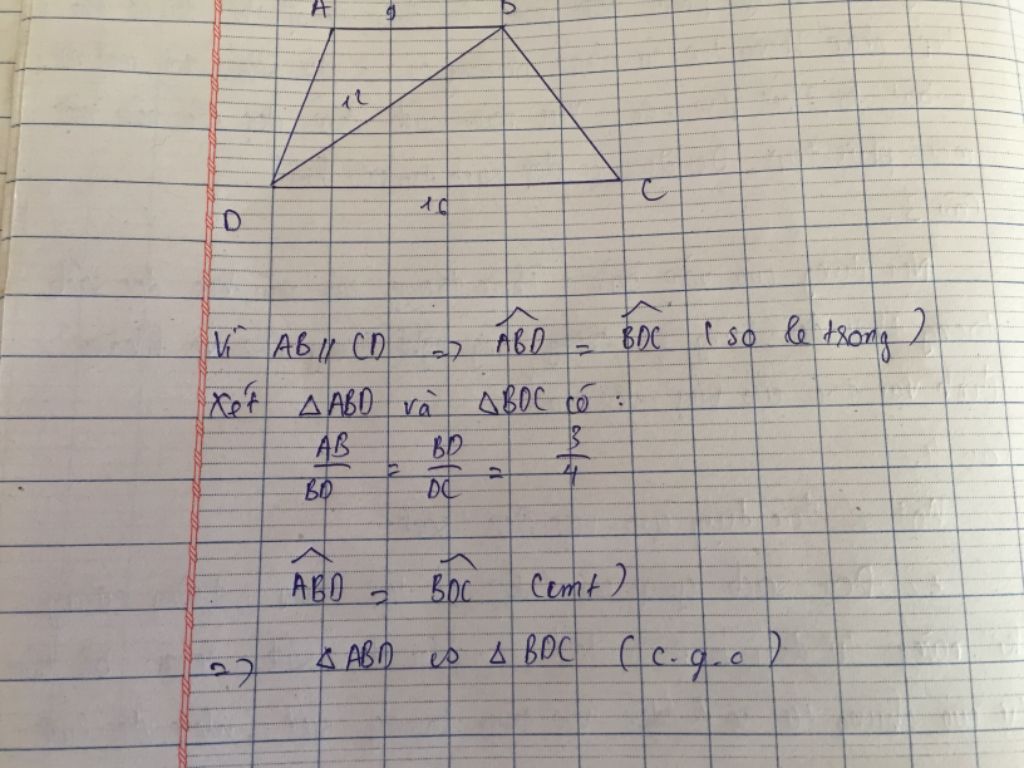 A 9 B
12
16
C
D
Vì AB // CD => ABD = BDC (so le trong)
Xét △ABD và △BDC có :
AB/BD = BD/DC = 3/4
ABD = BDC (cmt)
=> △ABD ∽ △BDC (c.g.c)